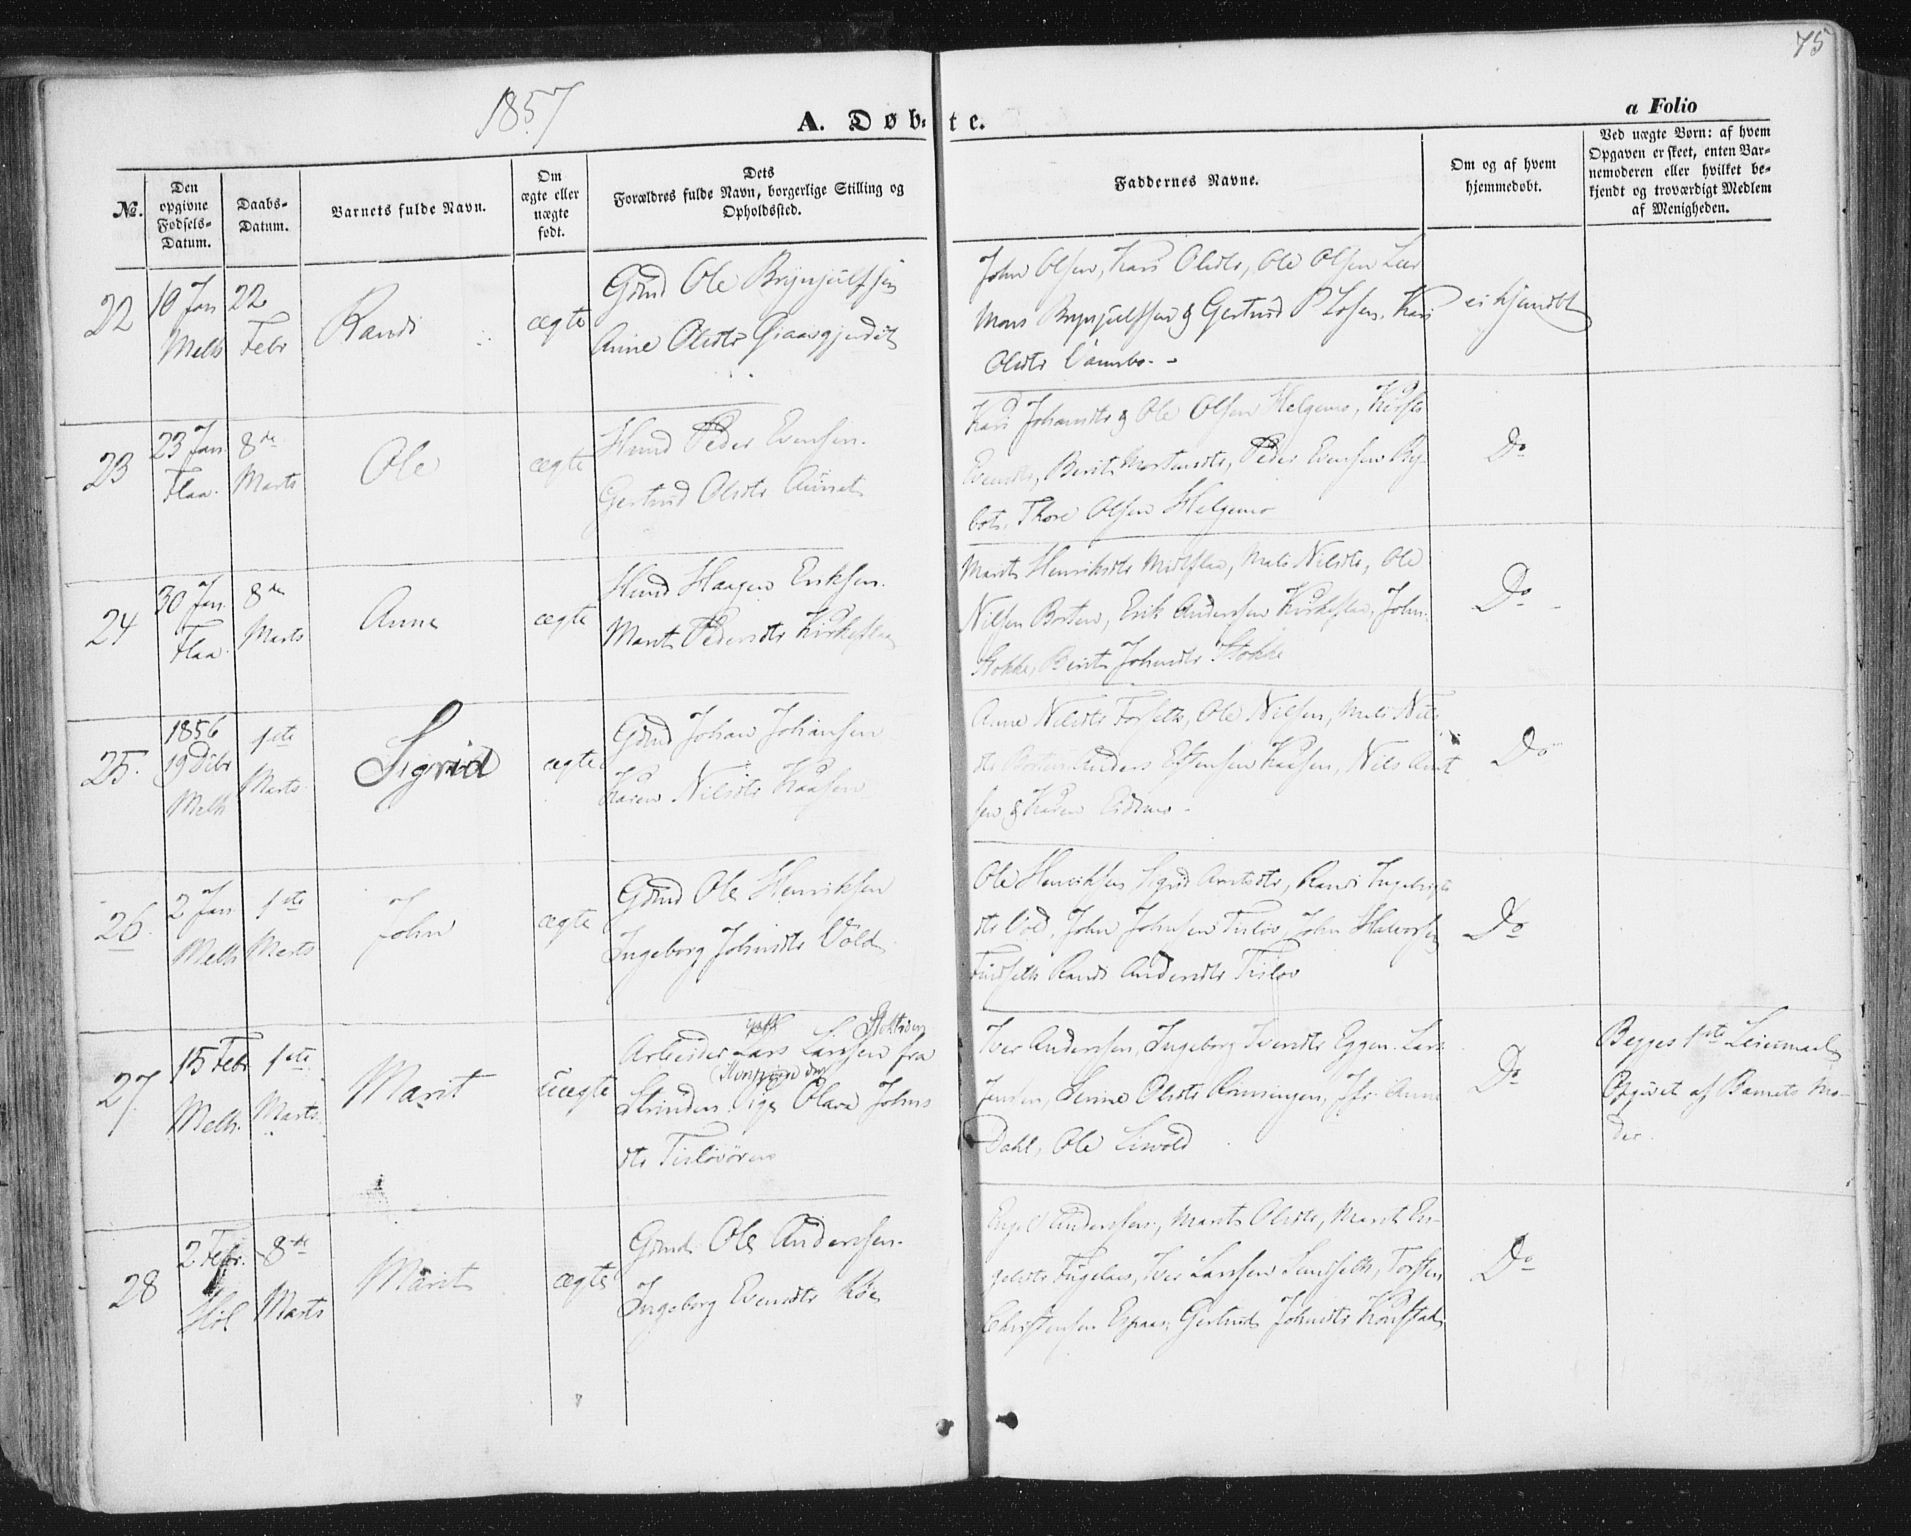 75
1857
A. Døbte.
a Folio
No.
Den opgivne Fødsels-Datum.
Daabs-Datum.
Barnets fulde Navn.
Om ægte eller uægte født.
Dets Forældres fulde Navn, borgerlige Stilling og Opholdssted.
Faddernes Navne.
Om og af hvem hjemmedøbt.
Ved uægte Børn: af hvem Opgaven er skeet, enten Barnemoderen eller hvilket bekjendt og troværdigt Medlem af Menigheden.
22
10 Jan
Melh
22
Febr
Randi
ægte
Gmd Ole Brynjulfsen
Anne Olsdtr
John Olsen, Kari Olsdtr, Ole Olsen Leer
Mons Brynjulfsen & Gertrud P Losen, Kari
Olsdtr
ei hjemdbt
23
23 Jan
Flaa
8de
Marts
Ole
ægte
Huusmd Peder Evensen
Gertrud Olsdtr Aunet
Kari Johansdtr & Ole Olsen Helgemo, Kirsti
Evensdtr, Berit Mortensdtr, Peder Evensen
Thore Olsen Helgemo
Do
24
30 Jan
Flaa
8de
Marts
Anne
ægte
Haagen Eriksen
Marit Pedersdtr Kirkeflaa
Marit Henriksdtr, Mali Nilsdtr, Ole
Nilsen Borten, Erik Anderssen Kirkeflaa, John
Stokke, Berit Johnsdtr Stokke
Do
25
1856
19 Dcbr
Melh
1ste
Marts
Sigrid
ægte
Gmd Johan Johansen
Karen Nilsdtr Kaasen
Anne Nilsdtr Forseth, Ole Nilsen, Mali Nils
dtr Borten, Anders Estensen Kaasen, Nils Arnt
sen & Karen
Do
26
2 Jan
Melh
1ste
Marts
John
ægte
Gmd Ole Henriksen
Ingeborg Johnsdtr Vold
Ole Henriksen, Sigrid Arntsdtr, Randi Ingebrigts
dtr Vold, John Johnsen Tislov, John Halvorsen
Randi Andersdtr Tislov
Do
27
15 Febr
Melh.
1ste
Marts
Marit
uægte
Arbeider Lars Larssen fra
Strinden, Pige Olava Johns
dtr
Iver Anderssen, Ingeborg Iversdtr Eggen, Lars
Jensen, Serine Olsdtr Rønningen, Jfr. Anne
Dahl, Ole
Do
Begges 1ste Leiermaal
Opgivet af Barnets Mo-
der.
28
2 Febr.
Høl
8de
Marts
Marit
ægte
Gmd Ole Anderssen
Ingeborg Evensdtr Røe
Engel Anderssen, Marit Olsdtr, Marit En-
gelsdtr Fuglaas, Iver Larssen Lundseth, Torsten
Christensen Espaas, Gertrud Johnsdtr
Do